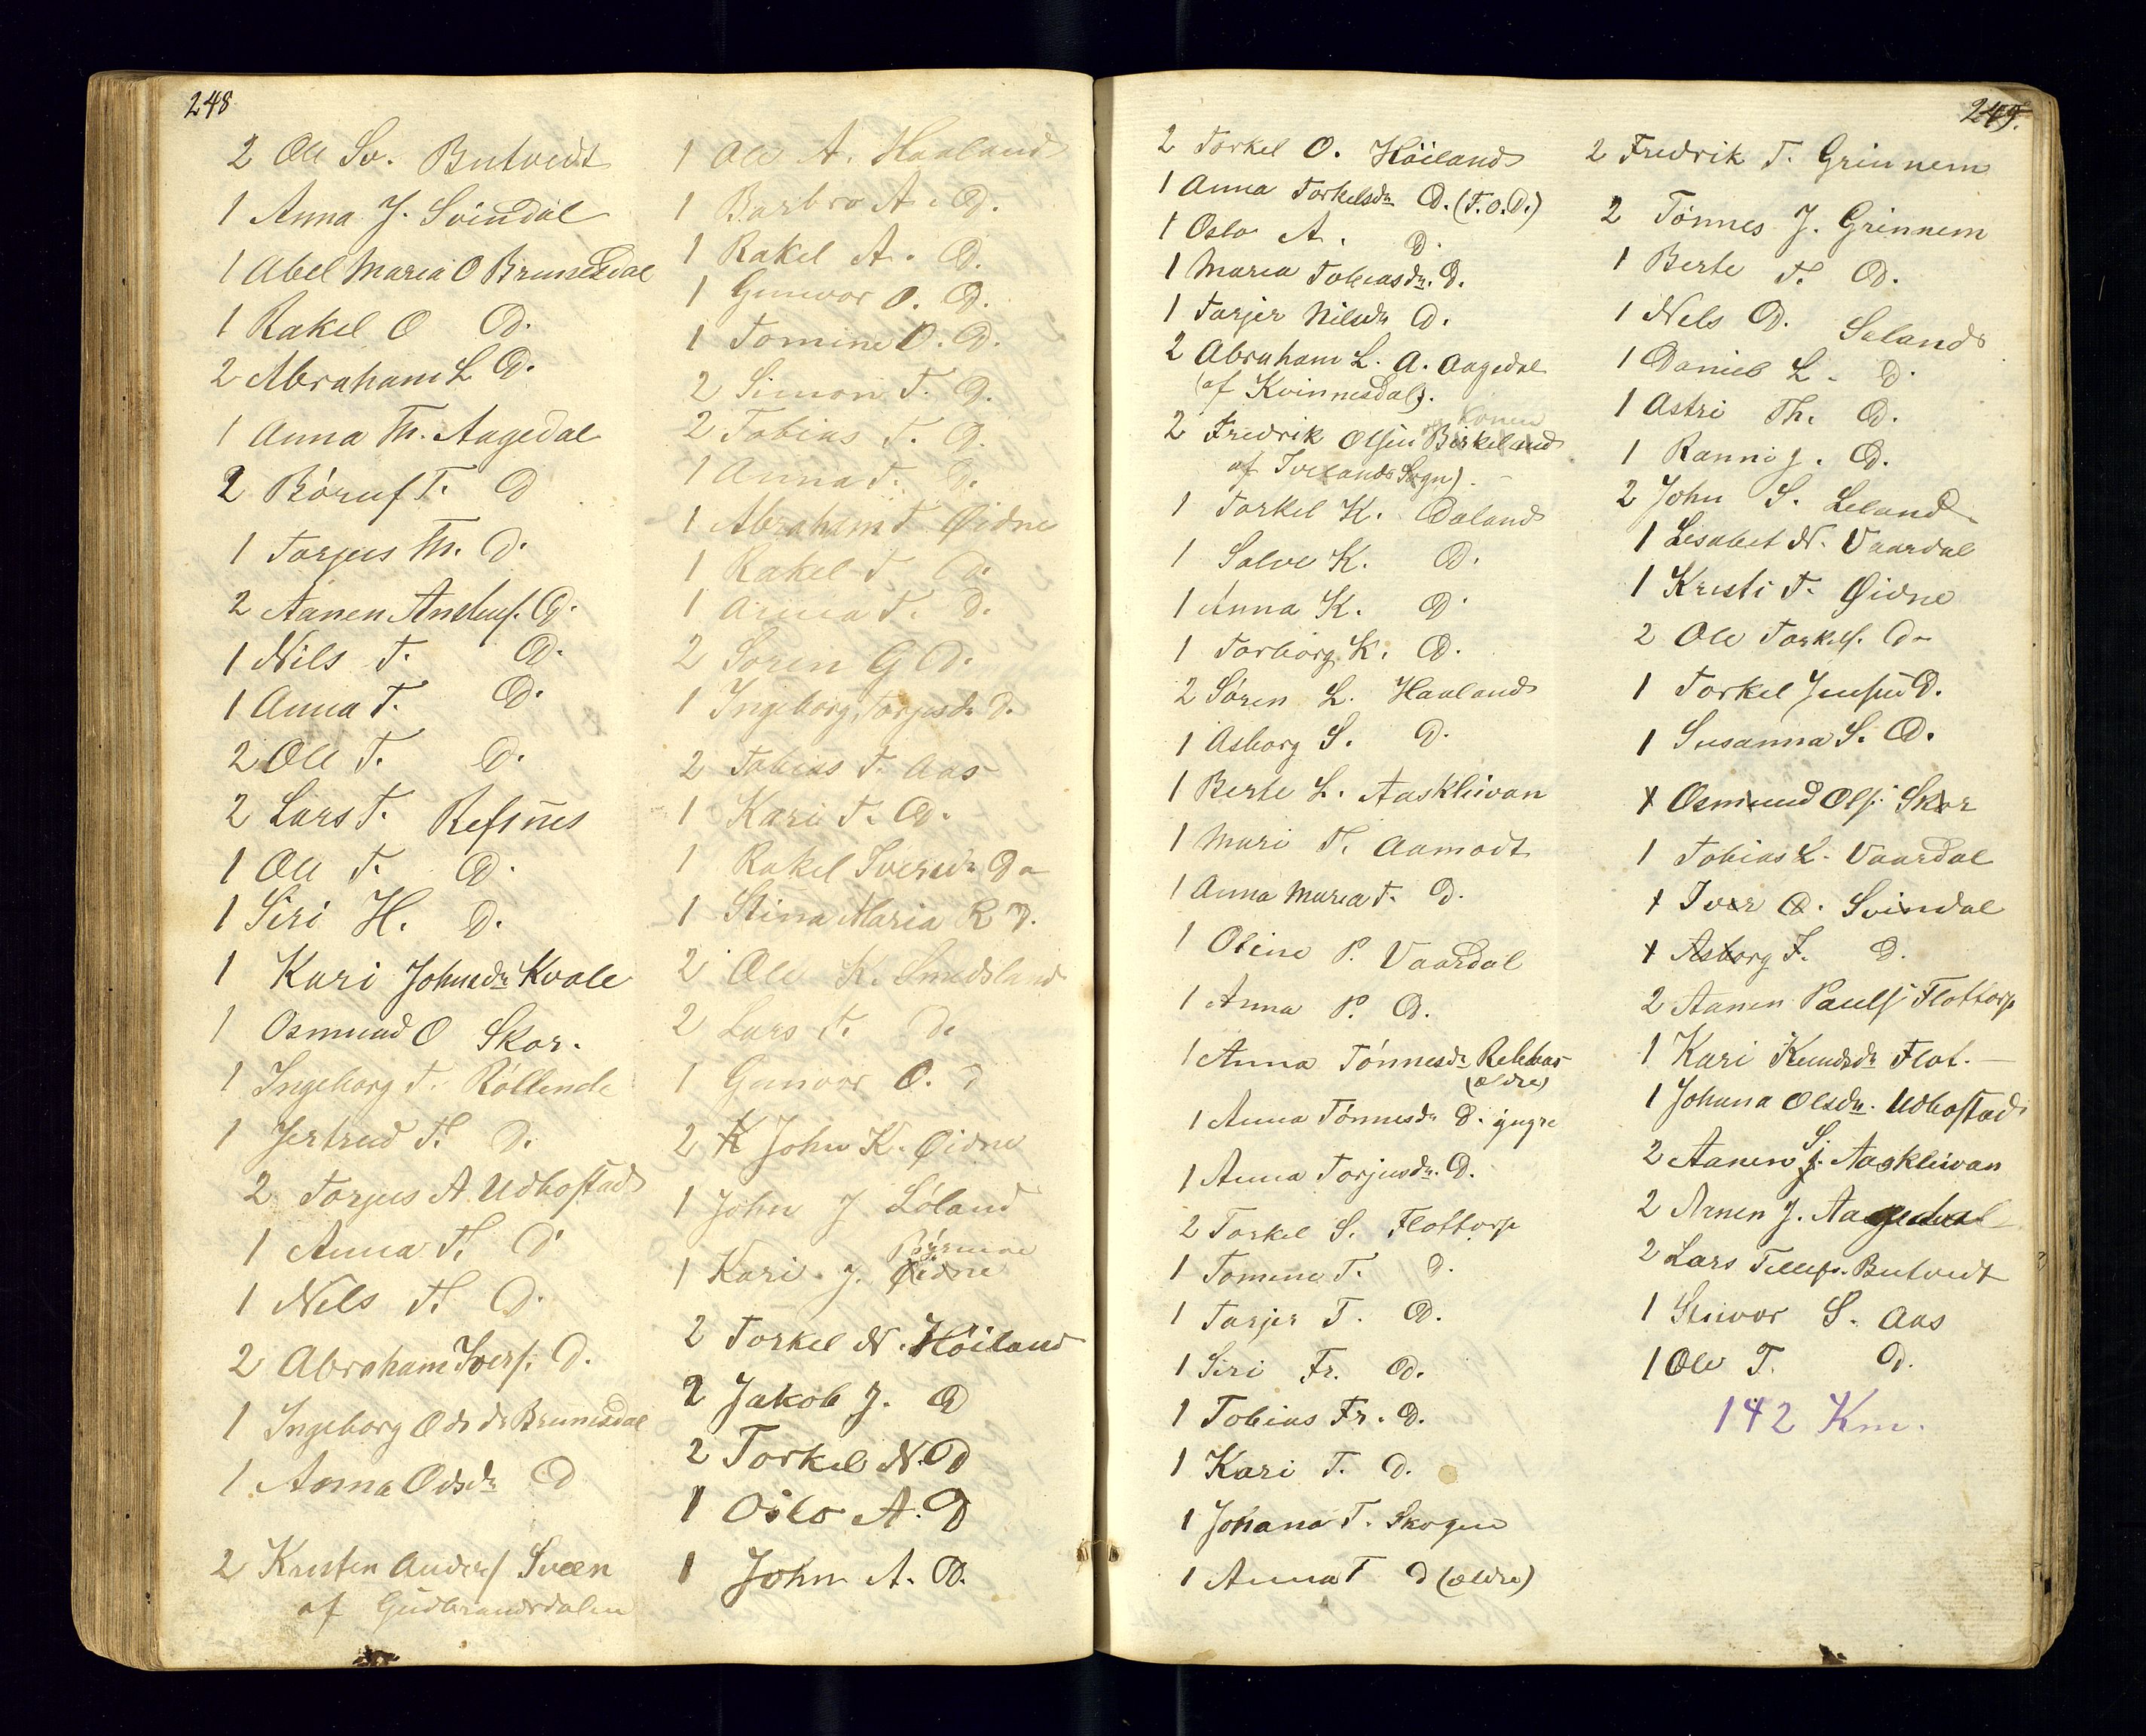 248
2 Ole Sv. Butvedt
1 Anna J. Svindal
1 Abel Maria O Brunesdal
1 Rakel O D.
2 Abraham L D.
1 Anna Th. Aagedal
2 Böruf T. D
1 Torjus Th. D.
2 Aanen Anders. D.
1 Nils T. D.
1 Anna T. D.
2 Ole T. D.
2 Lars T. Refsnes
1 Ole T. D.
1 Siri H. D.
1 Kari Johnsdr Kvale
1 Osmund O Skor.
1 Ingeborg T. Röllend
1 Jertrud T. D.
2 Torjus A. Udbostad
1 Anna T. D
1 Nels T. D.
2 Abraham Ivers. D.
1 Ingeborg Odsdr Brunesdal
1 Anna Odsdr D
2 Kristen Anders Sveen
af Gudbrandsdalen
1 Ole A. Haaland
1 Barbro A. D.
1 Rakel A. D.
1 Gunvor O. D.
1 Tomine O. D.
2 Simon T. D.
2 Tobias T. D.
1 Anna T. D.
1 Abraham T. Øidne
1 Rakel T D.
1 Anna T. D.
2 Soren G D.
1 Ingeborg Torjusdr D.
2 Tobias T. Aas
1 Kari T. D.
1 Rakel Iversdr Do
1 Stina Maria R D.
2 Ole K. Smedsland
2 Lars T. D.
1 Gunvor O. D
2 K John K. Øidne
1 John J Löland
Röyrmoe
1 Kari J. Øidne
2 Torkel N. Höiland
2 Jakob J. D
2 Torkel N. D
1 Oslo A. D
1 John A. D.
249.
2 Torkel O. Höiland
1 Anna Torkelsdr D. (T.O.D.)
1 Oslo A. D.
1 Maria Tobiasdr. D.
1 Tarjer Nilsdr D.
2 Abraham L. A. Aagedal
(af Kvinnesdal).
og Konen
2 Fredrik Olsen Birkeland
af Ivelands Sogn).
1 Torkel K. Daland
1 Salve K. D.
1 Anna K. D.
1 Torborg K. D.
2 Sören L. Haaland
1 Asborg S. D.
1 Berte L. Aasklivan
1 Mari T. Aamodt
1 Anna Maria T. D.
1 Oline P. Vaardal
1 Anna P. D.
1 Anna Tönnesdr
(ældre)
1 Anna Tönnesdr D. yngre
1 Anna Torjusdr. D.
2 Torkel S. Flottorp
1 Tomine T. D.
1 Tarjer T. D.
1 Siri Fr. D.
1 Tobias Fr. D.
1 Kari T. D.
1 Johana T. Skogen
1 Anna T D (ældre)
2 Fredrik T. Grinnem
2 Tönnes J. Grinnem
1 Berte T. D.
1 Nels D. Seland
1 Daniel L. D.
1 Astri Th. D.
1 Ranni J. D.
2 John S. Leland
1 Lisabet N. Vaardal
1 Kristi T. Øidne
2 Ole Torkels. Do
1 Torkel Jensen D.
1 Susanna S. D.
1 Osmund Ols. Skor
1 Tobias L. Vaardal
1 Iver O. Svindal
1 Asborg F. D.
2 Aanen Pauls Flottorp
1 Kari Knudsdr Flot.
1 Johana Olsdr. Udbostad
2 Aanen S. Aasklivan
2 Aanen J. Aagedal
2 Lars Tellefs. Butvedt
1 Sivor S. Aas
1 Ole T. D.
142 Km.